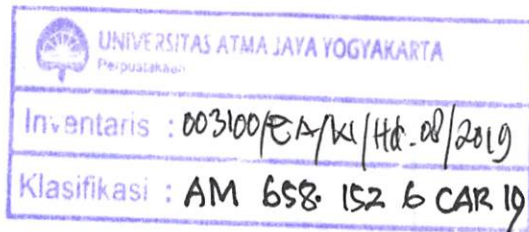 UNIVERSITAS ATMA JAYA YOGYAKARTA
Perpustakaan
Inventaris : 003100/EA/KI/Hd.08/2019
Klasifikasi : AM 658.152 6 CAR 19